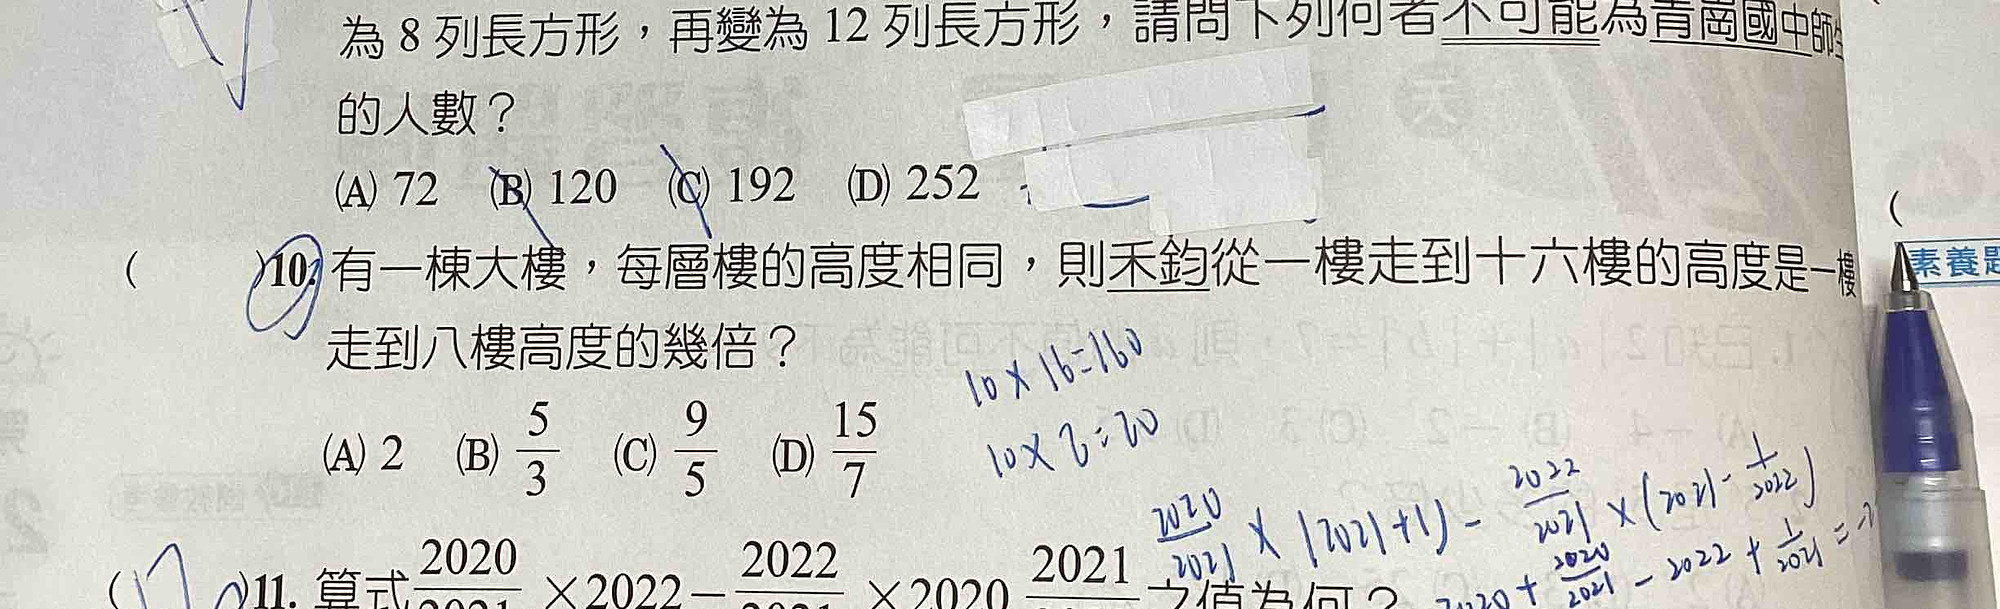 為 8 列長方形，再變為 12 列長方形，請問下列何者不可能為青崗國中師生
的人數？
(A) 72 (B) 120 (C) 192 (D) 252
( )10. 有一棟大樓，每層樓的高度相同，則禾鈞從一樓走到十六樓的高度是一樓
走到八樓高度的幾倍？
10×16=160
(A) 2 (B) 5/3 (C) 9/5 (D) 15/7
2020/2021 × (2021+1) - 2022/2021 × (2021 - 1/2022)
( )11. 算式 2020/2021 ×2022－2022/2021 ×2020 2021 之值為何？
2020 + 2020/2021 - 2022 + 1/2021 =
素養題